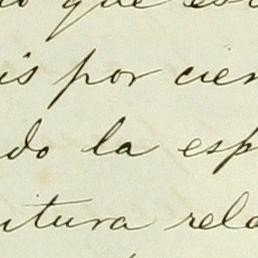 o que es
is por cien
do la esp
itura rela